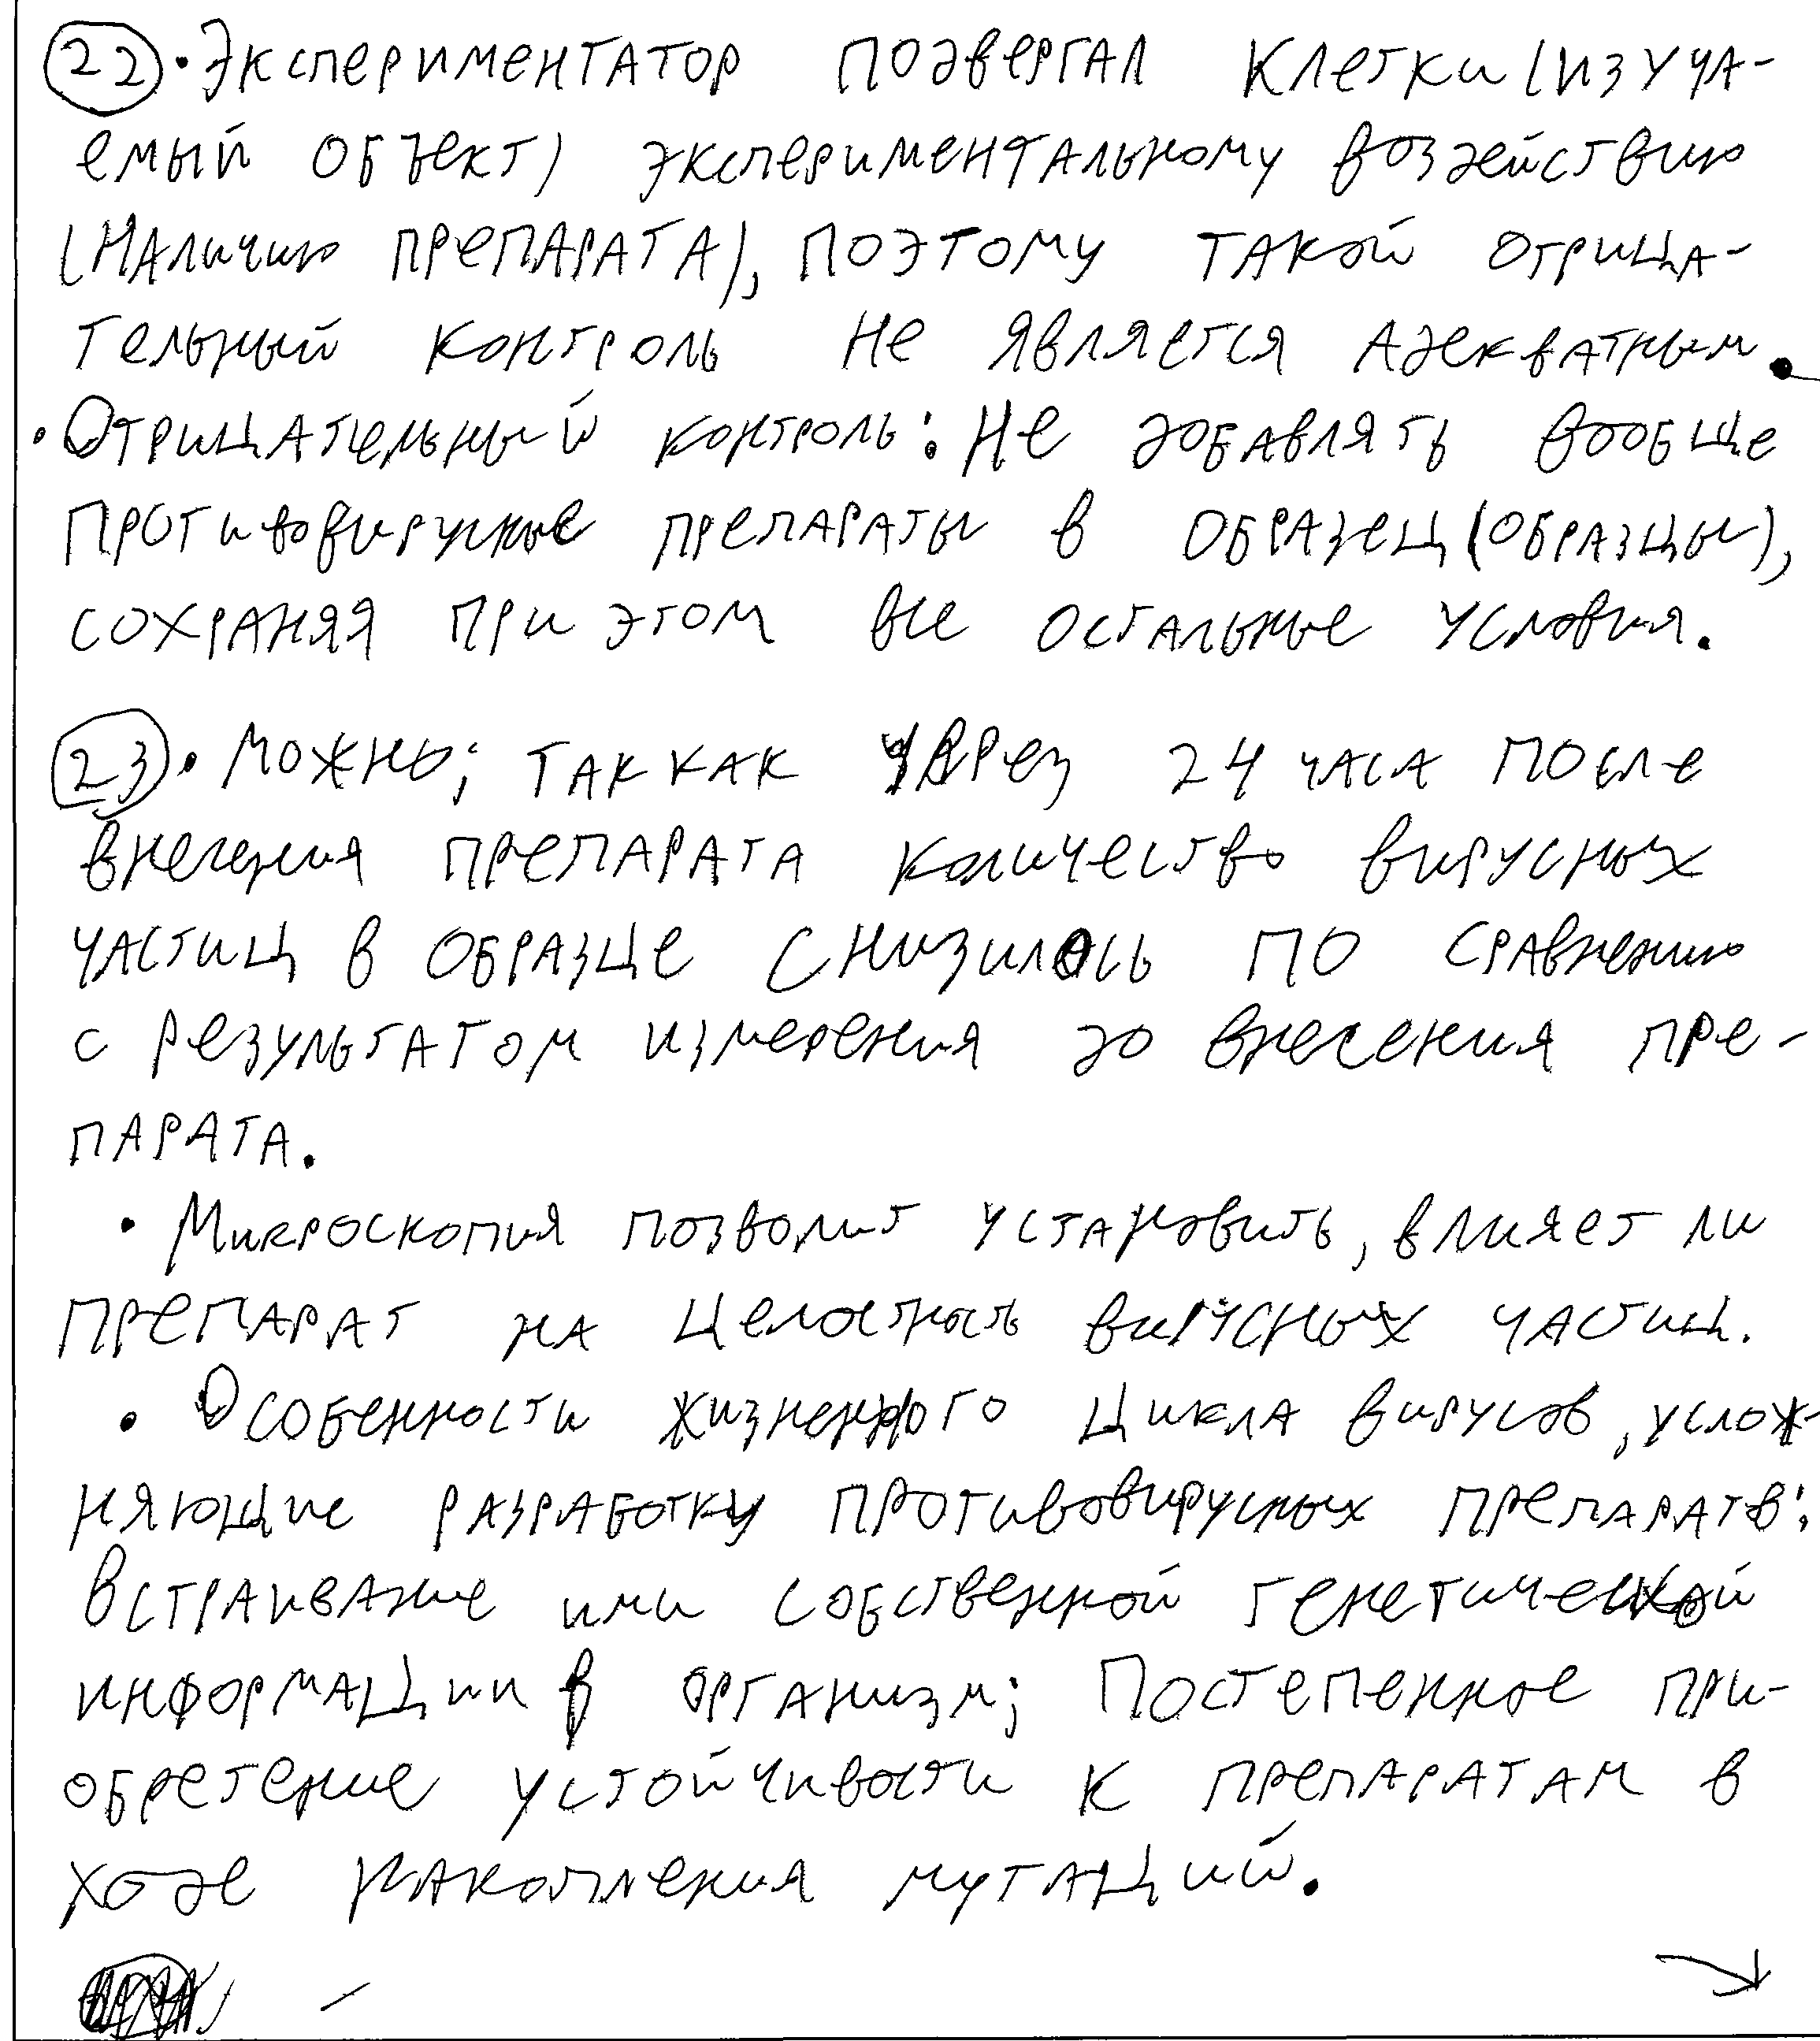 22 • Экспериментатор подвергал клетки (изуча-
емый объект) экспериментальному воздействию
(наличию препарата), поэтому такой отрица-
тельный контроль не является адекватным.
• Отрицательный контроль: не добавлять вообще
противовирусные препараты в образец (образцы),
сохраняя при этом все остальные условия.
23 • Можно; так как через 24 часа после
внесения препарата количество вирусных
частиц в образце снизилось по сравнению
с результатом измерения до внесения пре-
парата.
• Микроскопия позволит установить, влияет ли
препарат на целостность вирусных частиц.
• Особенности жизненного цикла вирусов, услож-
няющие разработку противовирусных препаратов:
Встраивание ими собственной генетической
информации в организм; Постепенное при-
обретение устойчивости к препаратам в
ходе накопления мутаций.